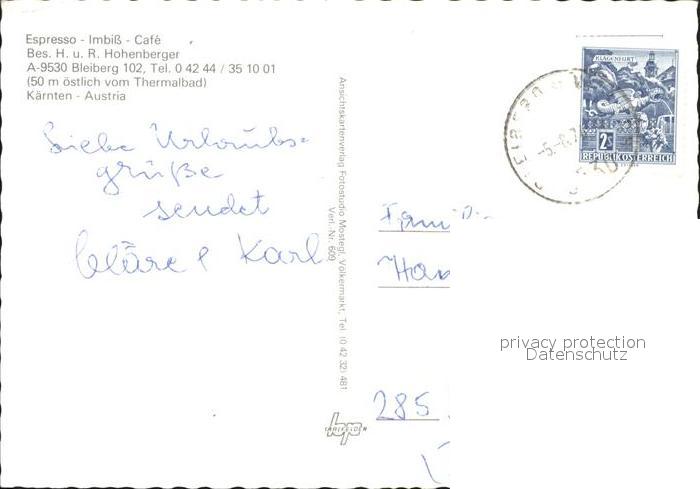 Espresso - Imbiß - Café
Bes. H. u. R. Hohenberger
A-9530 Bleiberg 102, Tel. 0 42 44 / 35 10 01
(50 m östlich vom Thermalbad)
Kärnten - Austria
Liebe Urlaubs-
grüße
sendet
Cläre & Karl
Ansichtskartenverlag Fotostudio Mostegl, Völkermarkt, Tel. (0 42 32) 481
Verl.-Nr. 609
KLAGENFURT
2S
REPUBLIK ÖSTERREICH
Fam
285
privacy protection
Datenschutz